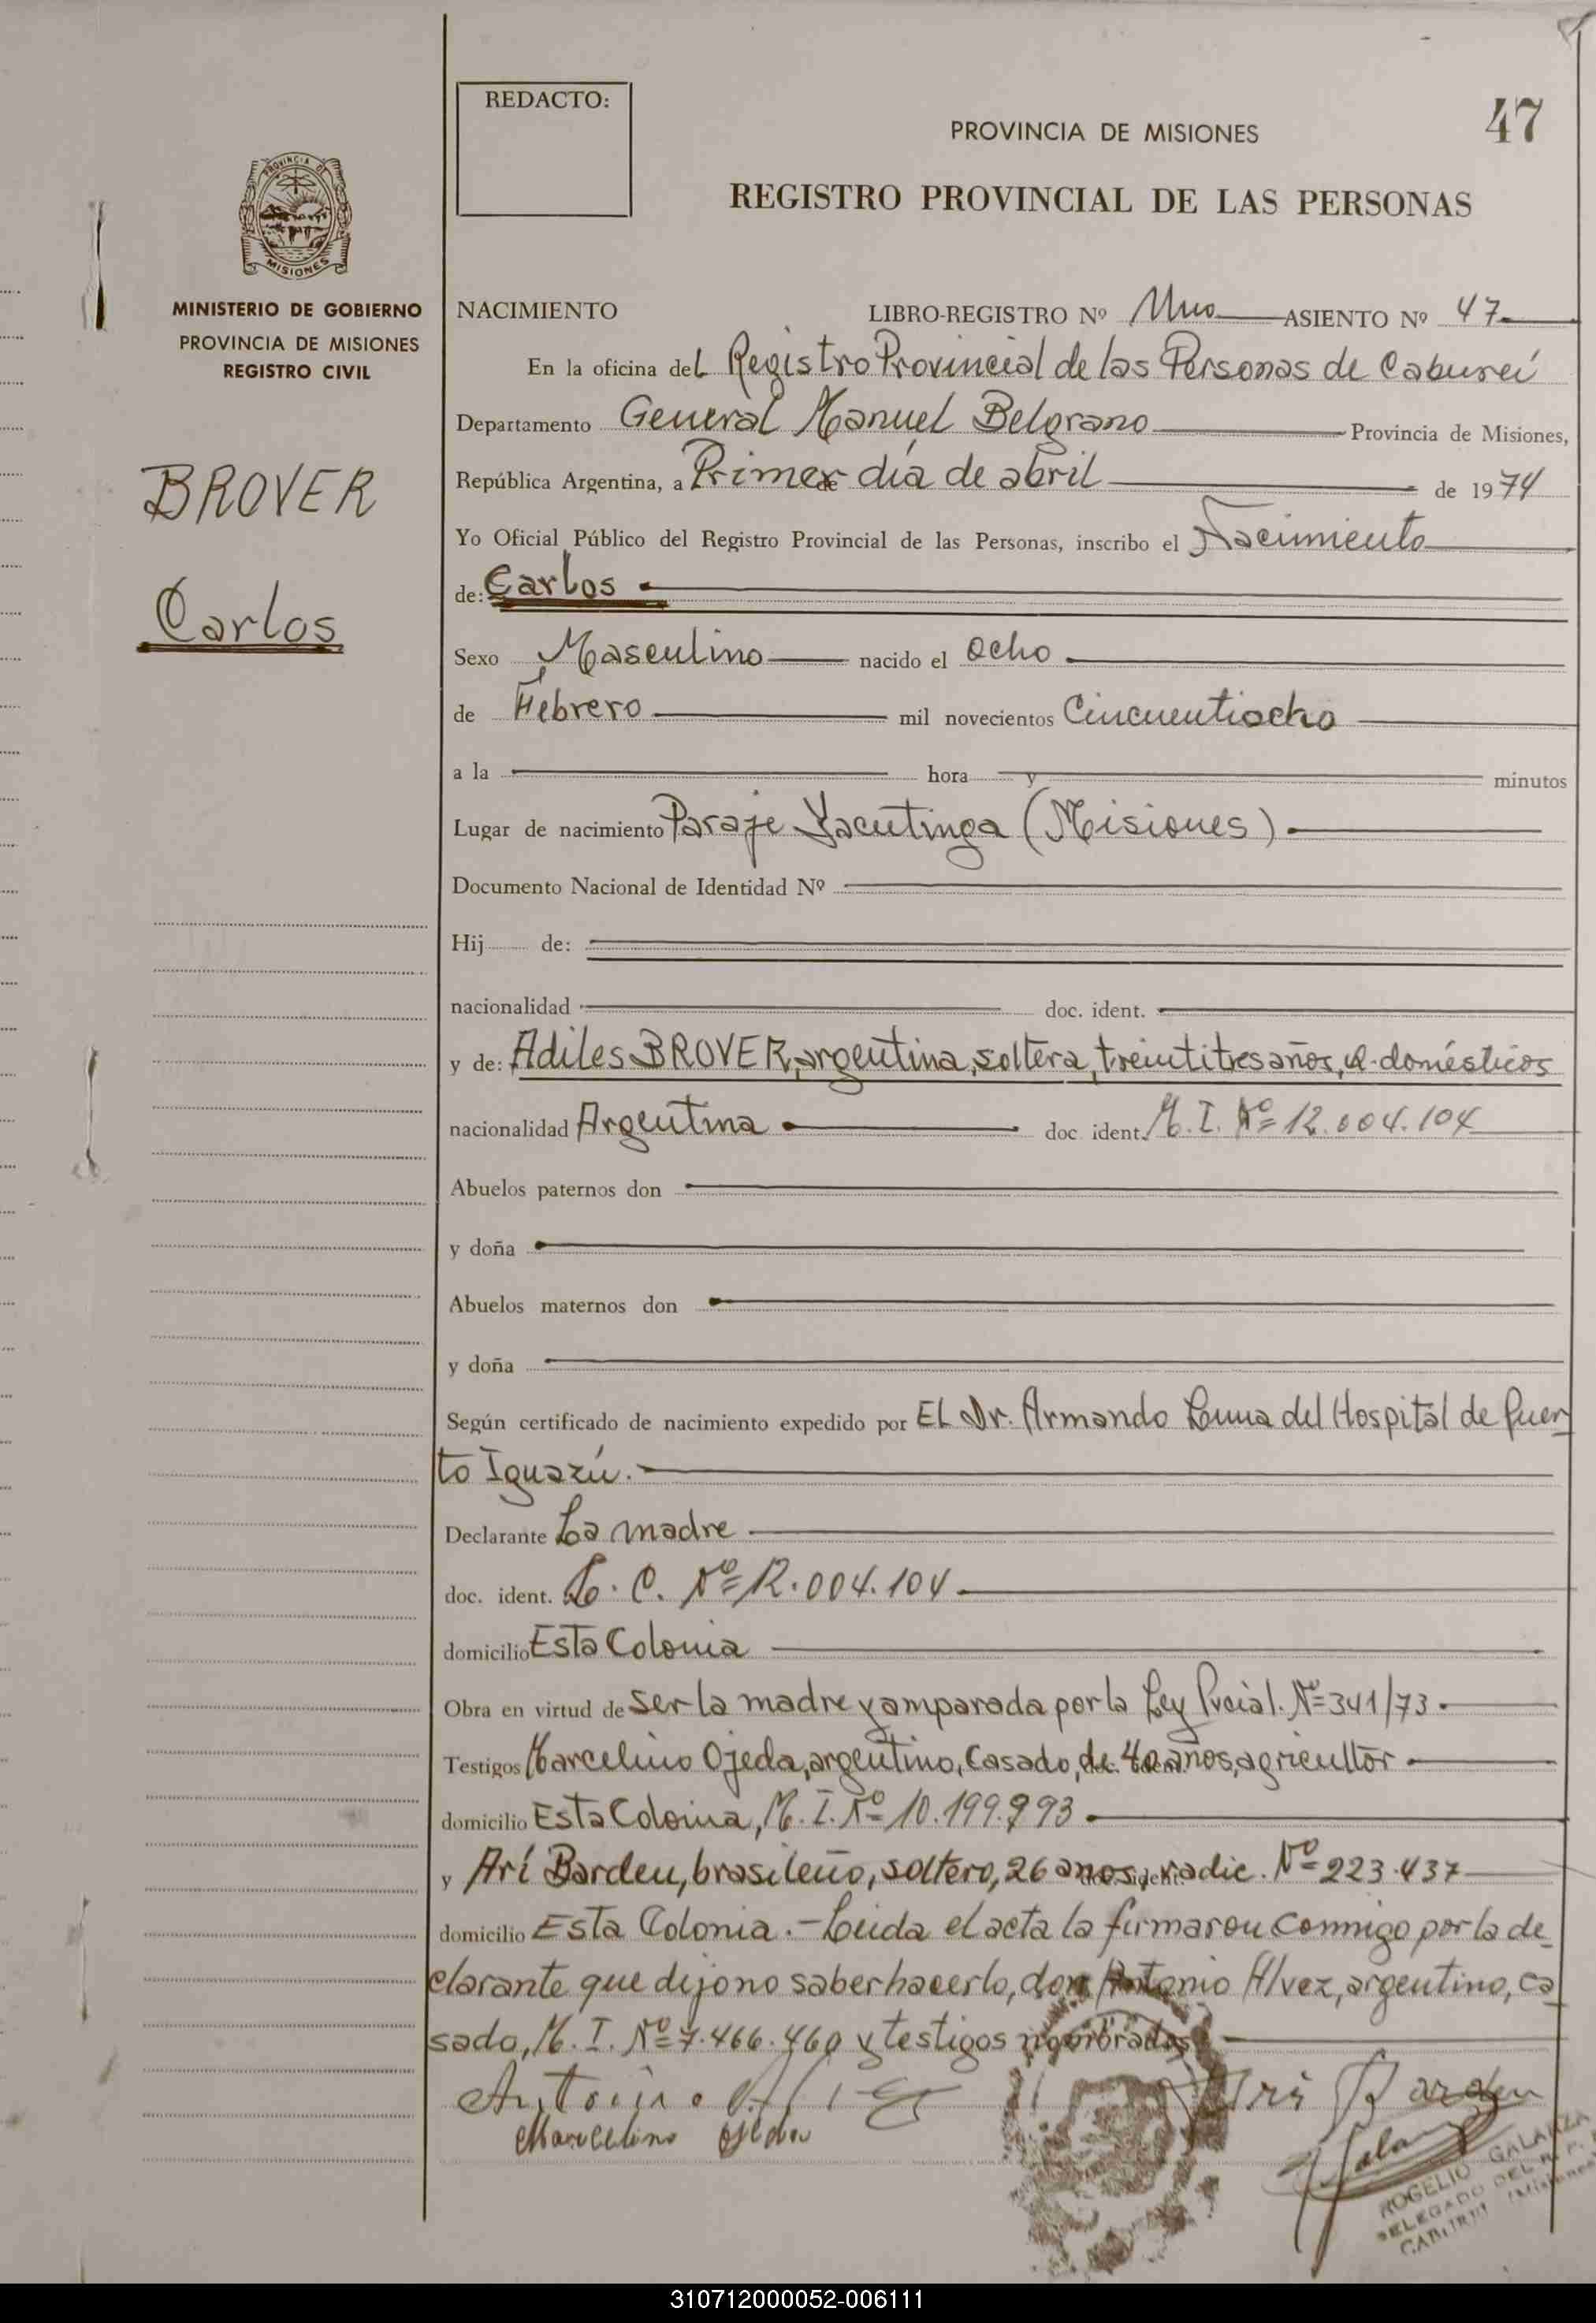 REDACTO:
47
PROVINCIA DE MISIONES
REGISTRO PROVINCIAL DE LAS PERSONAS
PROVINCIA DE
MISIONES
MINISTERIO DE GOBIERNO
PROVINCIA DE MISIONES
REGISTRO CIVIL
BROVER
Carlos
NACIMIENTO LIBRO-REGISTRO Nº Uno ASIENTO Nº 47
En la oficina del Registro Provincial de las Personas de Cabureí
Departamento General Manuel Belgrano Provincia de Misiones,
República Argentina, a Primer día de abril de 1974
Yo Oficial Público del Registro Provincial de las Personas, inscribo el Nacimiento
de: Carlos
Sexo Masculino nacido el Ocho
de Febrero mil novecientos Cincuentiocho
a la hora y minutos
Lugar de nacimiento Paraje Yacutinga (Misiones)
Documento Nacional de Identidad Nº
Hij de:
nacionalidad doc. ident.
y de: Adiles BROVER, argentina, soltera, treintitres años, Q. domésticos
nacionalidad Argentina doc ident. M. I. Nº 12.004.104
Abuelos paternos don
y doña
Abuelos maternos don
y doña
Según certificado de nacimiento expedido por El Dr. Armando Luna del Hospital de Puer
to Iguazú.
Declarante La madre
doc. ident. L. C. Nº 12.004.104
domicilio Esta Colonia
Obra en virtud de ser la madre y amparada por la Ley Pvcial. Nº 341/73.
Testigos Marcelino Ojeda, argentino, Casado, de 40 años, agricultor
domicilio Esta Colonia, M. I. Nº 10.199.993
y Arí Barden, brasileño, soltero, 26 años, radic. Nº 223.437
domicilio Esta Colonia.- Leida el acta la firmaron conmigo por la de
clarante que dijo no saber hacerlo, don Antonio Alvez, argentino, ca
sado, M. I. Nº 7.466.460 y testigos nombrados
Antonio
Aris Barden
Marcelino Ojeda
ROGELIO GALARZA
DELEGADO DEL R. P.
310712000052-006111